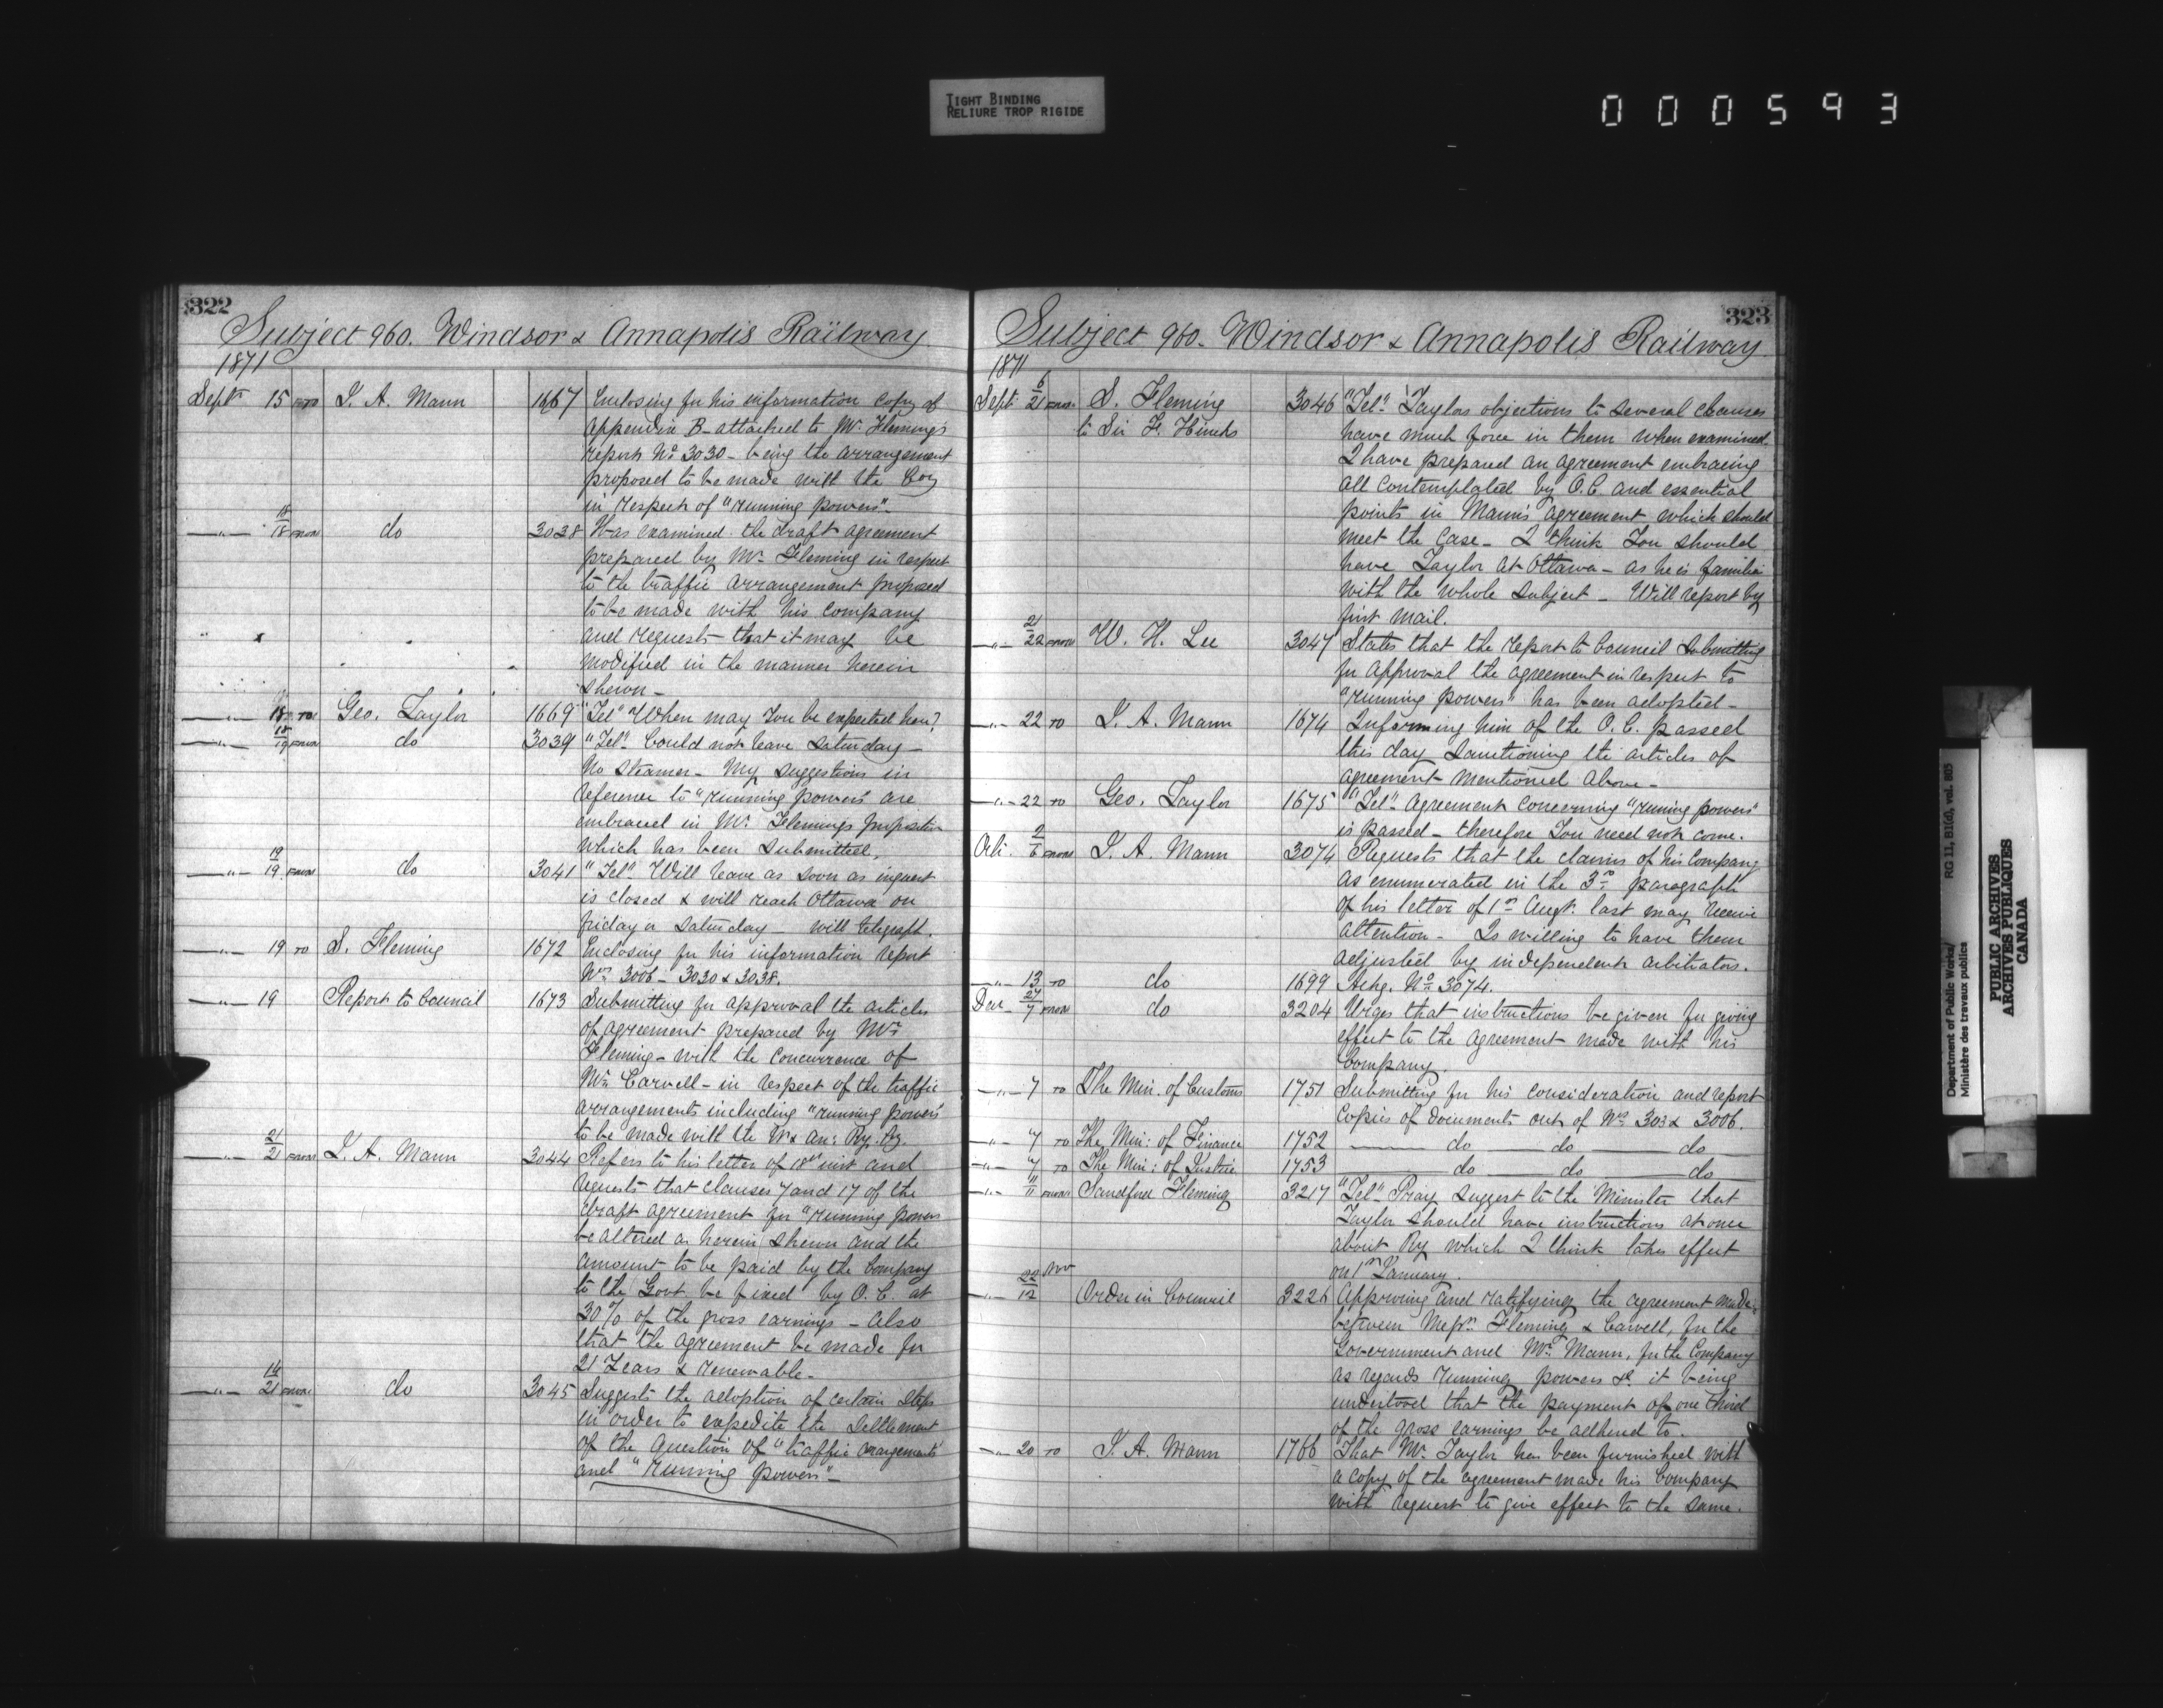 TIGHT BINDING
RELIURE TROP RIGIDE
000593
322
Subject 960. Windsor & Annapolis Railway
1871
Septr 15 TO J. A. Mann 1667 Enclosing for his information copy of
appendix B attached to Mr. Fleming's
report No. 3030 - being the arrangement
proposed to be made with the Coy
in respect of "running powers".
—„— 18/18 FROM do 3038 Has examined the draft agreement
prepared by Mr. Fleming in respect
to the traffic arrangement proposed
to be made with his company
and requests that it may be
modified in the manner herein
shewn -
—„— 18 TO Geo. Taylor 1669 "Tel" When may you be expected here?
—„— 18/19 FROM do 3039 "Tel" Could not leave Saturday -
No steamer - My suggestions in
reference to "running powers" are
embraced in Mr. Flemings proposition
which has been submitted.
—„— 19/19 FROM do 3041 "Tel" Will leave as soon as inquest
is closed & will reach Ottawa on
friday or Saturday - will telegraph.
—„— 19 TO S. Fleming 1672 Enclosing for his information report
Nos. 3006 - 3030 & 3038.
—„— 19 Report to Council 1673 Submitting for approval the articles
of agreement prepared by Mr.
Fleming - with the concurrence of
Mr. Carvell - in respect of the traffic
arrangements including "running powers"
to be made with the W & An: Ry. Cy.
—„— 21/21 FROM J. A. Mann 3044 Refers to his letter of 18th inst and
requests that clauses 7 and 17 of the
draft agreement for "running powers
be altered as herein shewn and the
amount to be paid by the Company
to the Govt. be fixed by O. C. at
30% of the gross earnings - also
that the agreement be made for
21 Years & renewable -
—„— 14/21 FROM do 3045 Suggests the adoption of certain steps
in order to expedite the settlement
of the question of "traffic arrangements"
and "running powers" -
323
Subject 960. Windsor & Annapolis Railway
1871
Sept 6/21 FROM S. Fleming 3046 "Tel" Taylors objections to several clauses
to Sir F. Hincks have much force in them when examined.
I have prepared an agreement embracing
all contemplated by O.C. and essential
points in Mann's agreement which should
meet the case - I think You should
have Taylor at Ottawa - as he is familiar
with the whole subject - Will report by
first mail.
—„— 21/22 FROM W. H. Lee 3047 States that the report to Council submitting
for approval the agreement in respect to
"running powers" has been adopted -
—„— 22 TO J. A. Mann 1674 Informing him of the O. C. passed
this day sanctioning the articles of
agreement mentioned above -
—„— 22 TO Geo. Taylor 1675 "Tel" Agreement concerning "running powers"
is passed - therefore You need not come.
Oct. 2/6 FROM J. A. Mann 3074 Requests that the claims of his Company
as enumerated in the 3rd paragraph
of his letter of 1st Augt. last may receive
attention - Is willing to have them
adjusted by independent arbitrators.
—„— 13 TO do 1699 Ackg. No. 3074.
Dec 27/7 FROM do 3204 Urges that instructions be given for giving
effect to the agreement made with his
Company.
—„— 7 TO The Min. of Customs 1751 Submitting for his consideration and report
copies of documents out of Nos. 303 & 3006.
—„— 7 TO The Min: of Finance 1752 — do — do — do —
—„— 7 TO The Min: of Justice 1753 — do — do — do —
—„— 11/11 FROM Sandford Fleming 3217 "Tel" Pray suggest to the Minister that
Taylor should have instructions at once
about Ry which I think takes effect
on 1st January.
—„— 22 Nov/12 Order in Council 3226 Approving and ratifying the agreement made
between Messrs. Fleming & Carvell, for the
Government and Mr. Mann, for the Company
as regards running powers &c. it being
understood that the payment of one third
of the gross earnings be adhered to.
—„— 20 TO J. A. Mann 1766 That Mr. Taylor has been furnished with
a copy of the agreement made his Company
with request to give effect to the same.
Department of Public Works/ RG 11, B1(d), vol. 805
Ministère des travaux publics
PUBLIC ARCHIVES
ARCHIVES PUBLIQUES
CANADA